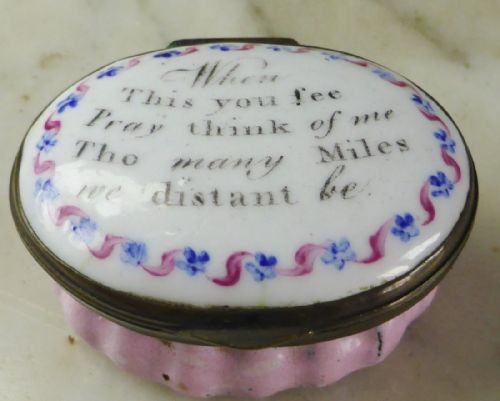 When
This you ſee
Pray think of me
Tho many Miles
we distant be.